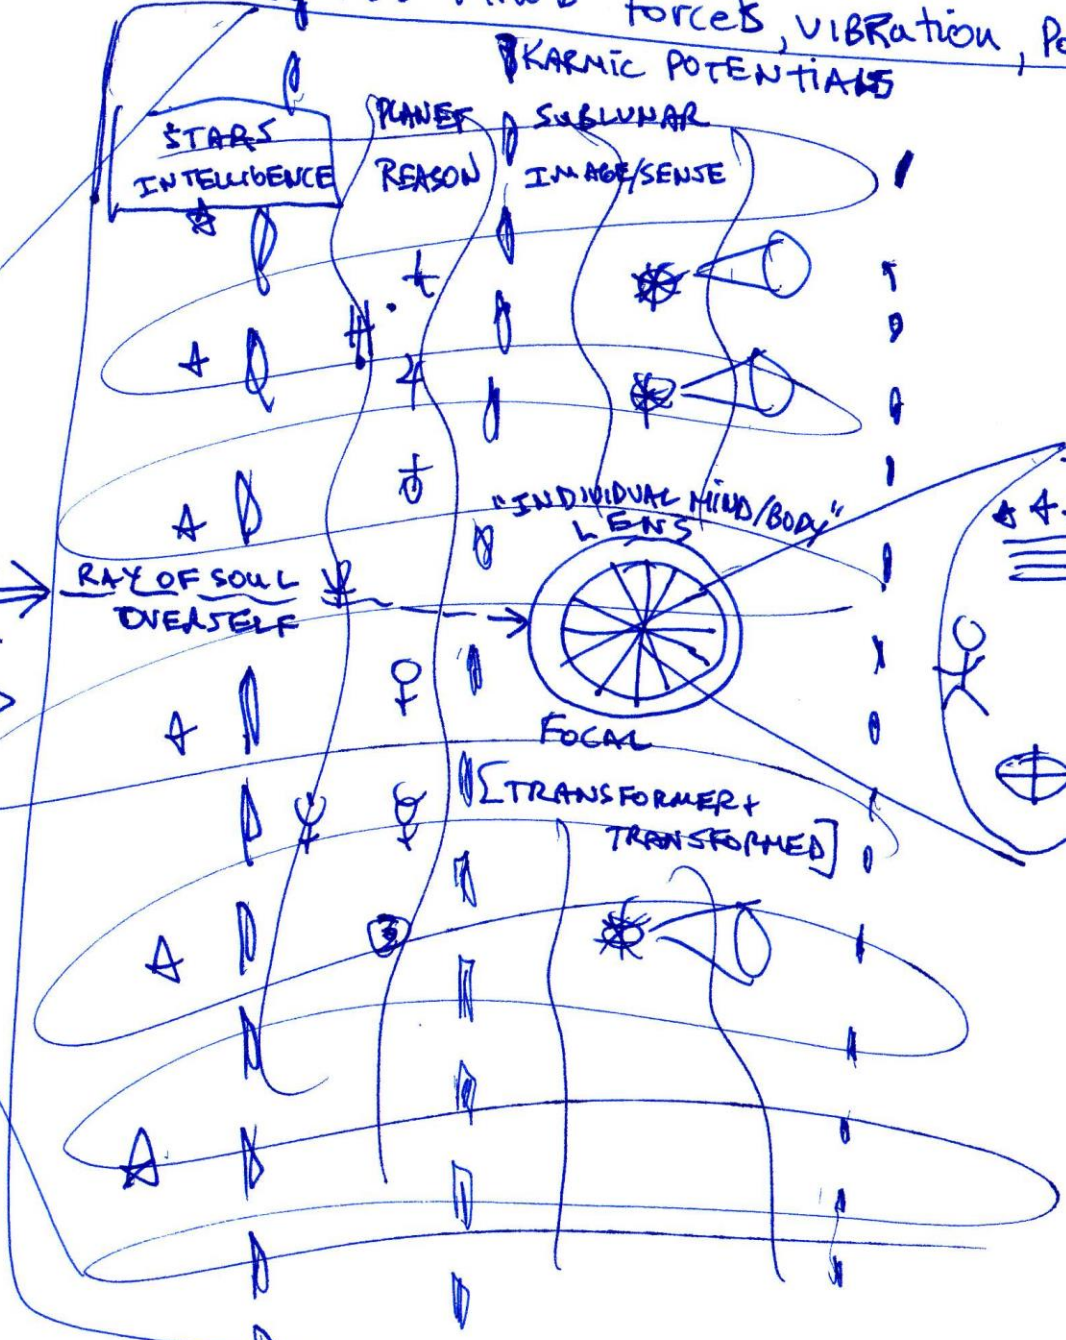 forces, VIBRATION, Po
KARMIC POTENTIALS
STARS
INTELLIGENCE
PLANET
REASON
SUBLUNAR
IMAGE/SENSE
"INDIVIDUAL MIND/BODY"
LENS
RAY OF SOUL
OVERSELF
FOCAL
[TRANSFORMER +
TRANSFORMED]